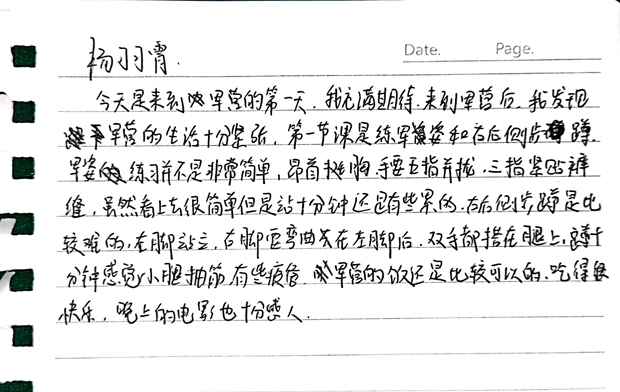 杨羽霄.
Date. Page.
今天是来到军营的第一天,我充满期待.来到军营后,我发现
军营的生活十分紧张,第一节课是练军姿和右后侧步蹲.
军姿练习并不是非常简单,昂首挺胸,手要五指并拢,三指紧贴裤
缝,虽然看上去很简单但是站十分钟还是有些累的.右后侧步蹲是比
较难的,左脚站立,右脚要弯曲在左脚后,双手都搭在腿上,蹲十
分钟感觉小腿抽筋有些疲倦.军营的饭还是比较可以的.吃得很
快乐,晚上的电影也十分感人.